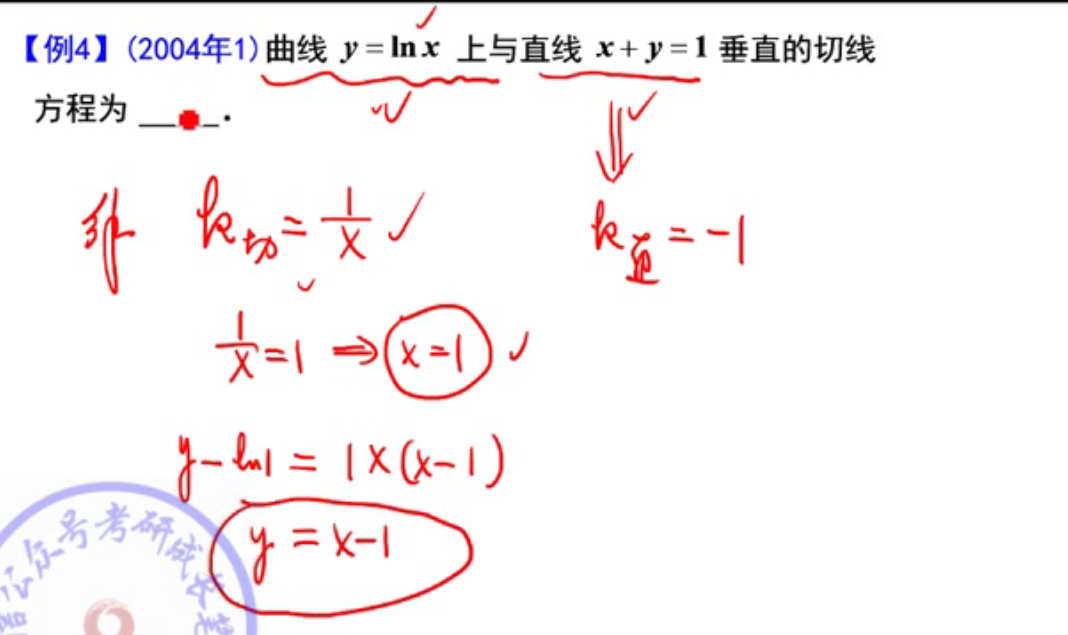 【例4】(2004年1)曲线 y = ln x 上与直线 x + y = 1 垂直的切线
方程为 ____.
k切 = 1/x ✓
k直 = -1
1/x = 1 ⇒ x = 1 ✓
y - ln1 = 1×(x-1)
y = x-1
公众号考研成长笔